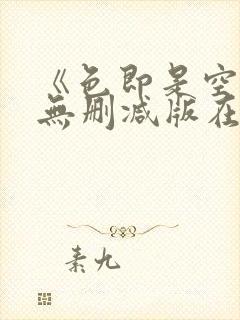 《色即是空
無刪減版在
素九